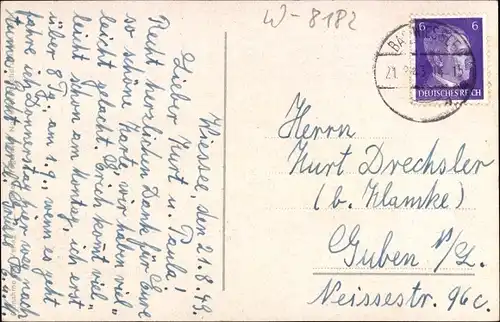 W-8182
BAD WIESSEE
21. 8. 43
6 6
DEUTSCHES REICH
Wiessee, den 21. 8. 43.
Lieber Kurt u. Paula!
Recht herzlichen Dank für Eure
so schöne Karte, wir haben viel
leicht gelacht. Erich kommt viel-
leicht schon am Montag, ich erst
über 8 Tg., am 1. 9., wenn es geht
fahre ich Donnerstag hier weg nach
Recht herzl. Grüße
Herrn
Kurt Drechsler
(b. Klamke)
Guben N/L.
Neissestr. 96c.